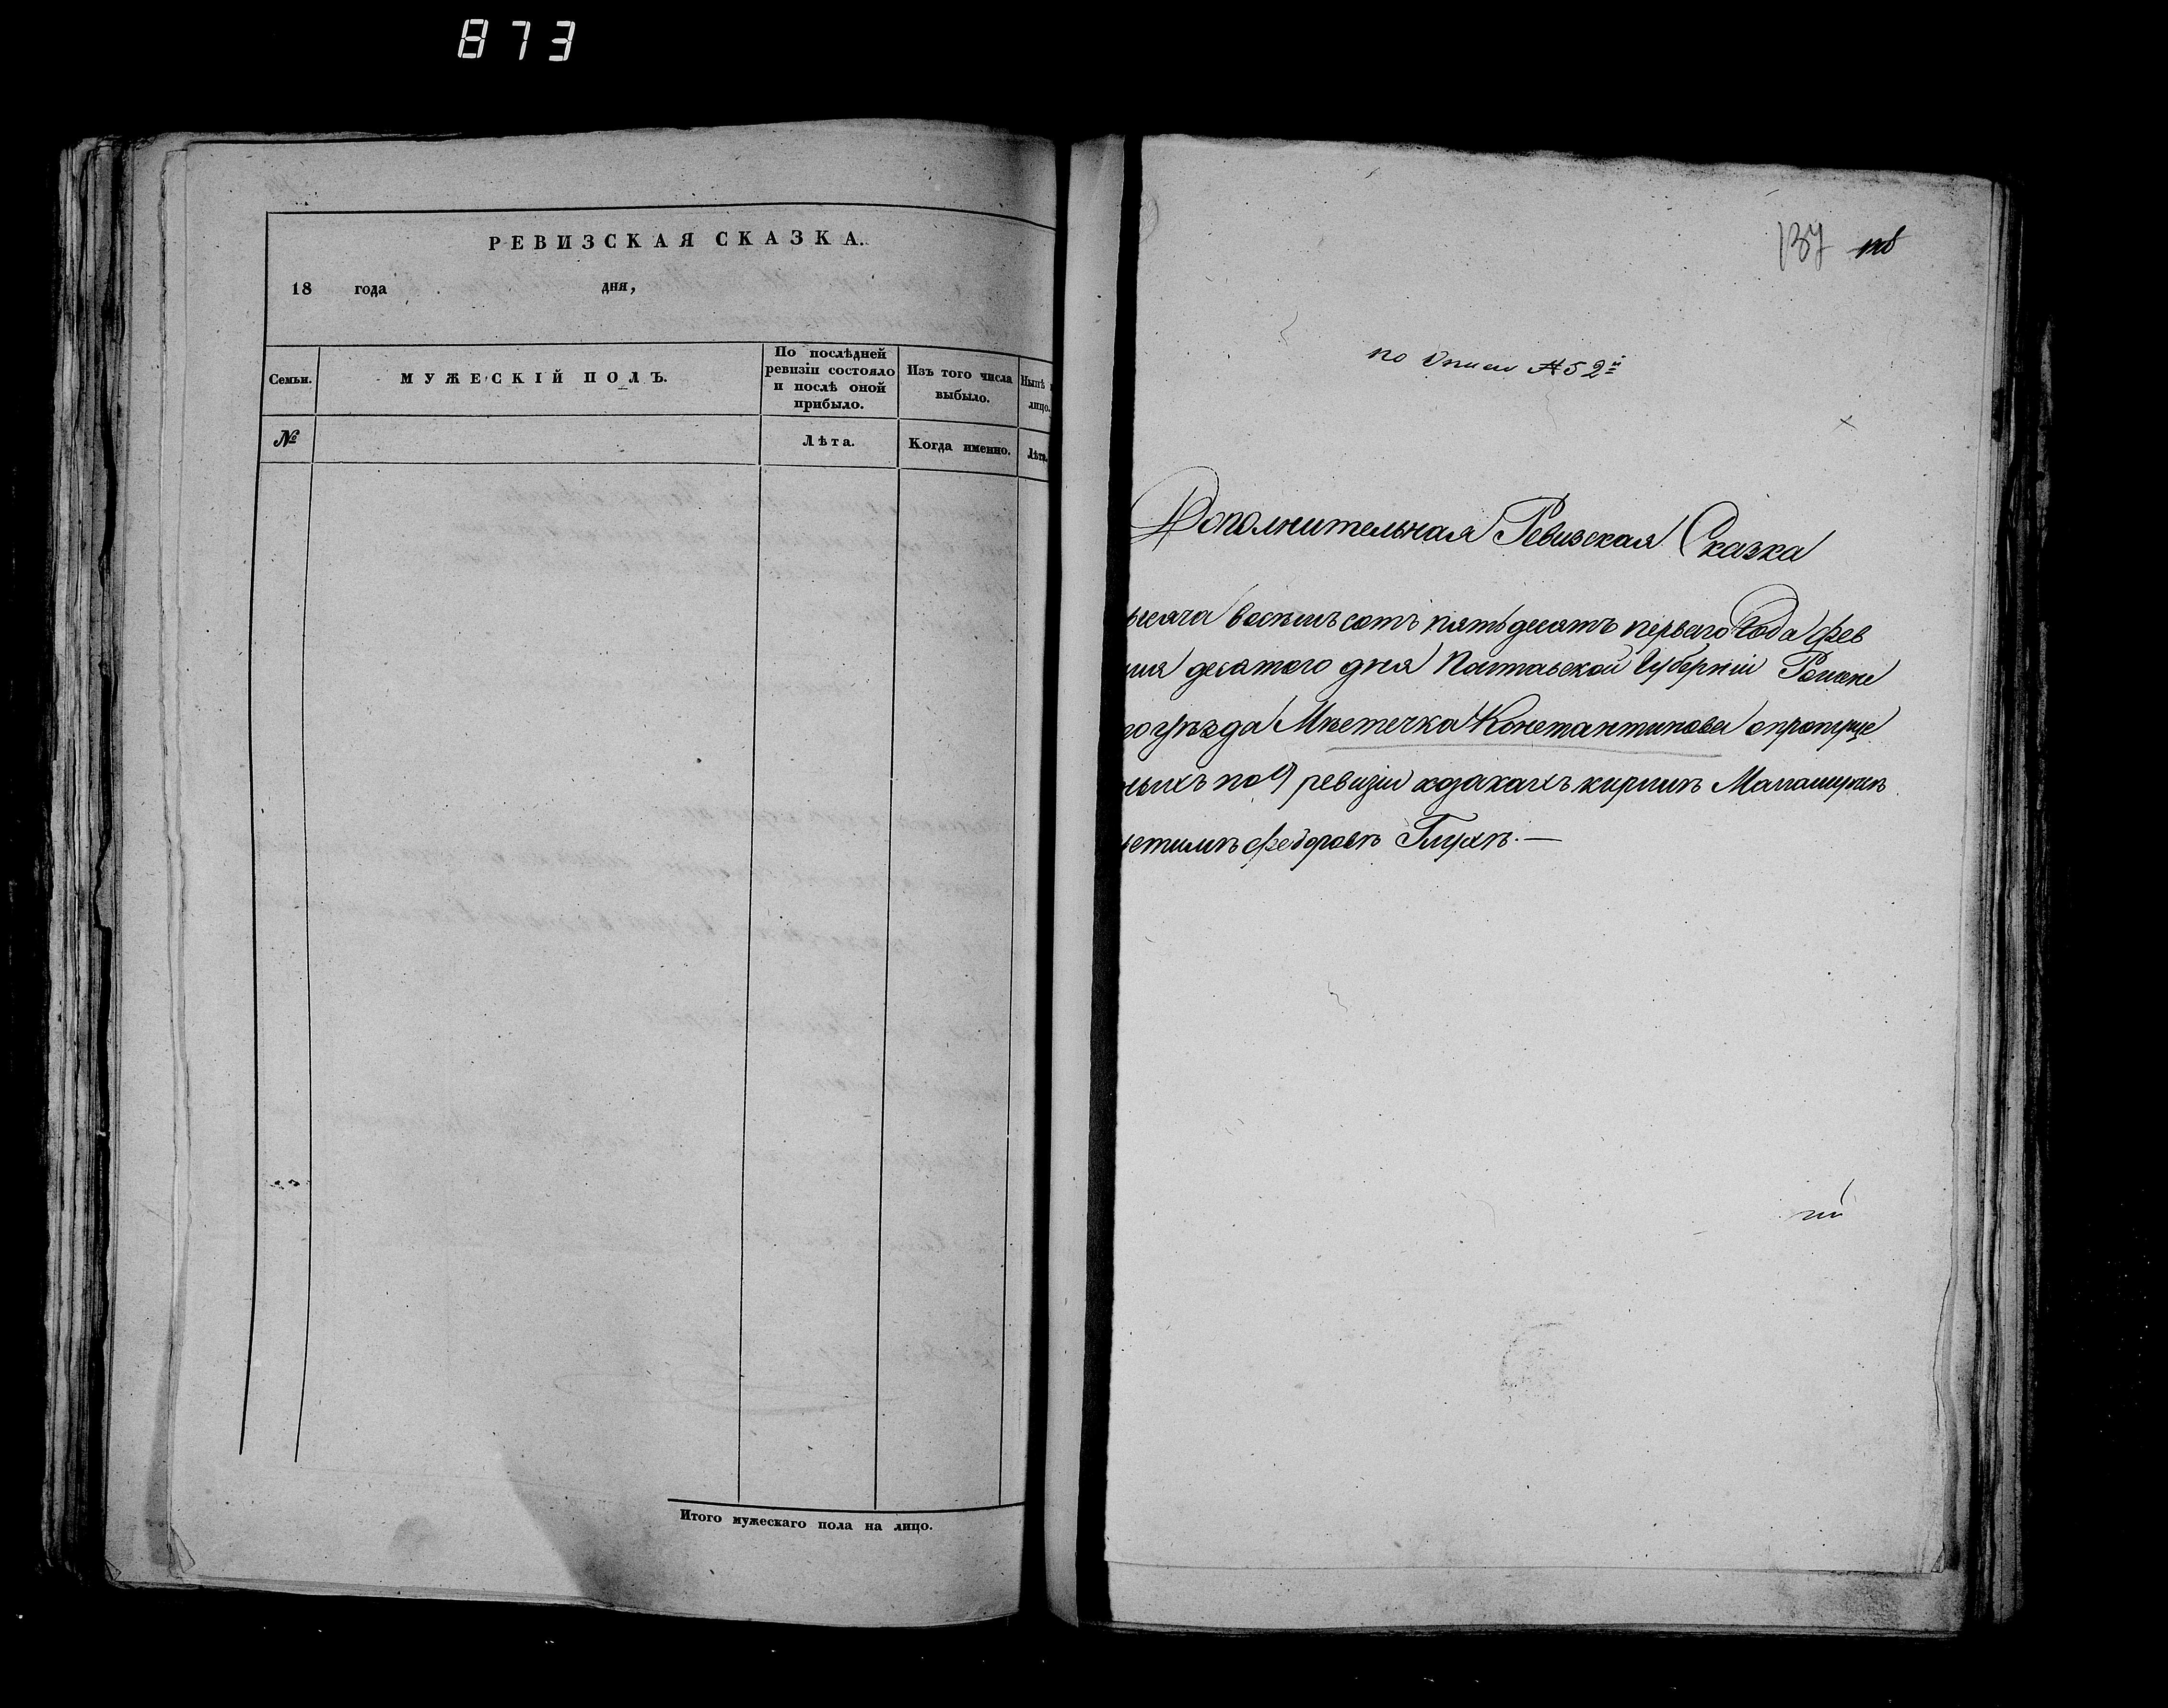 873
РЕВИЗСКАЯ СКАЗКА.
18 года дня,
Семьи.
МУЖЕСКІЙ ПОЛЪ.
По послѣдней
ревизіи состояло
и послѣ оной
прибыло.
Изъ того числа
выбыло.
Нынѣ
лицо.
№
Лѣта.
Когда именно.
Лѣта.
Итого мужескаго пола на лицо.
137
по Описи № 52й
Дополнительная Ревизская Сказка
ысяча восемь сотъ пятьдесятъ перваго Года фев
ля десятого дня Полтавской Губерніи Роменс
го уѣзда Мѣстечка Константинова опропуще
ныхъ по 9 ревизіи козакахъ
Федоровѣ Глухѣ.—